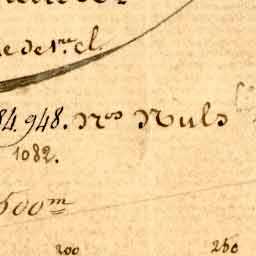 e de 1re cl.
84. 948. Nos Nuls
1082.
500m
200 250